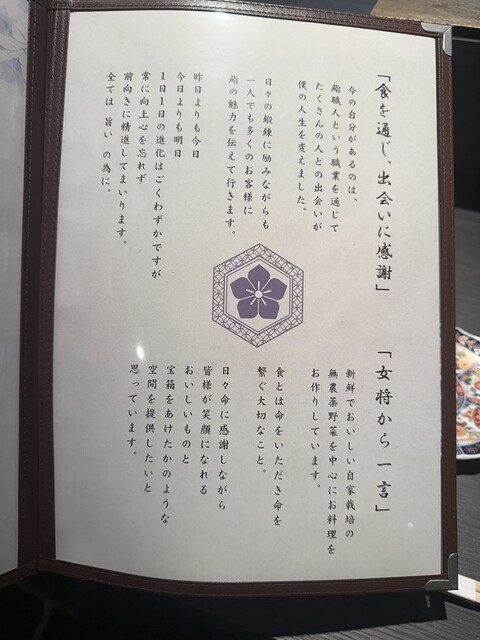 「食を通じ、出会いに感謝」
今の自分があるのは、
鮨職人という職業を通じて
たくさんの人との出会いが
僕の人生を変えました。
日々の鍛錬に励みながらも
一人でも多くのお客様に
鮨の魅力を伝えて行きます。
昨日よりも今日
今日よりも明日
1日1日の進化はごくわずかですが
常に向上心を忘れず
前向きに精進してまいります。
全ては 旨い の為に。
「女将から一言」
新鮮でおいしい自家栽培の
無農薬野菜を中心にお料理を
お作りしています。
食とは命をいただき命を
繋ぐ大切なこと。
日々命に感謝しながら
皆様が笑顔になれる
おいしいものと
宝箱をあけたかのような
空間を提供したいと
思っています。